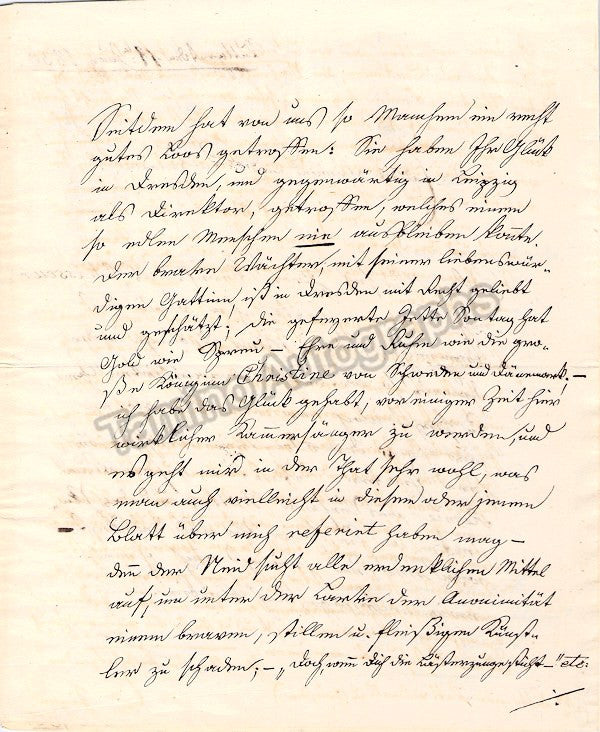 Seitdem hat von uns so Manchen ein recht
gutes Loos getroffen: Sie haben Ihr Glück
in Dresden, und gegenwärtig in Leipzig
als Direktor, getroffen, welches einem
so edlen Menschen nie ausbleiben konnte.
Der brave Wächter, mit seiner liebenswür-
digen Gattinn, ist in Dresden mit Recht geliebt
und geschätzt; die gefeyerte Jette Sontag hat
Gold wie Spreu – Ehre und Ruhm wie die gro-
ße Königinn Christine von Schweden und Dänemark; –
ich habe das Glück gehabt, vor einiger Zeit hier
wirklicher Kammersänger zu werden, und
es geht mir in der That sehr wohl, was
man auch vielleicht in diesem oder jenem
Blatt über mich referirt haben mag –
denn der Neid sucht alle erdenklichen Mittel
auf, um unter der Larve der Anonimität
einem braven, stillen u. fleißigen Künst-
ler zu schaden; – „Doch, wenn Dich die Lästerzunge sticht –" etc:
Tamino Autographs